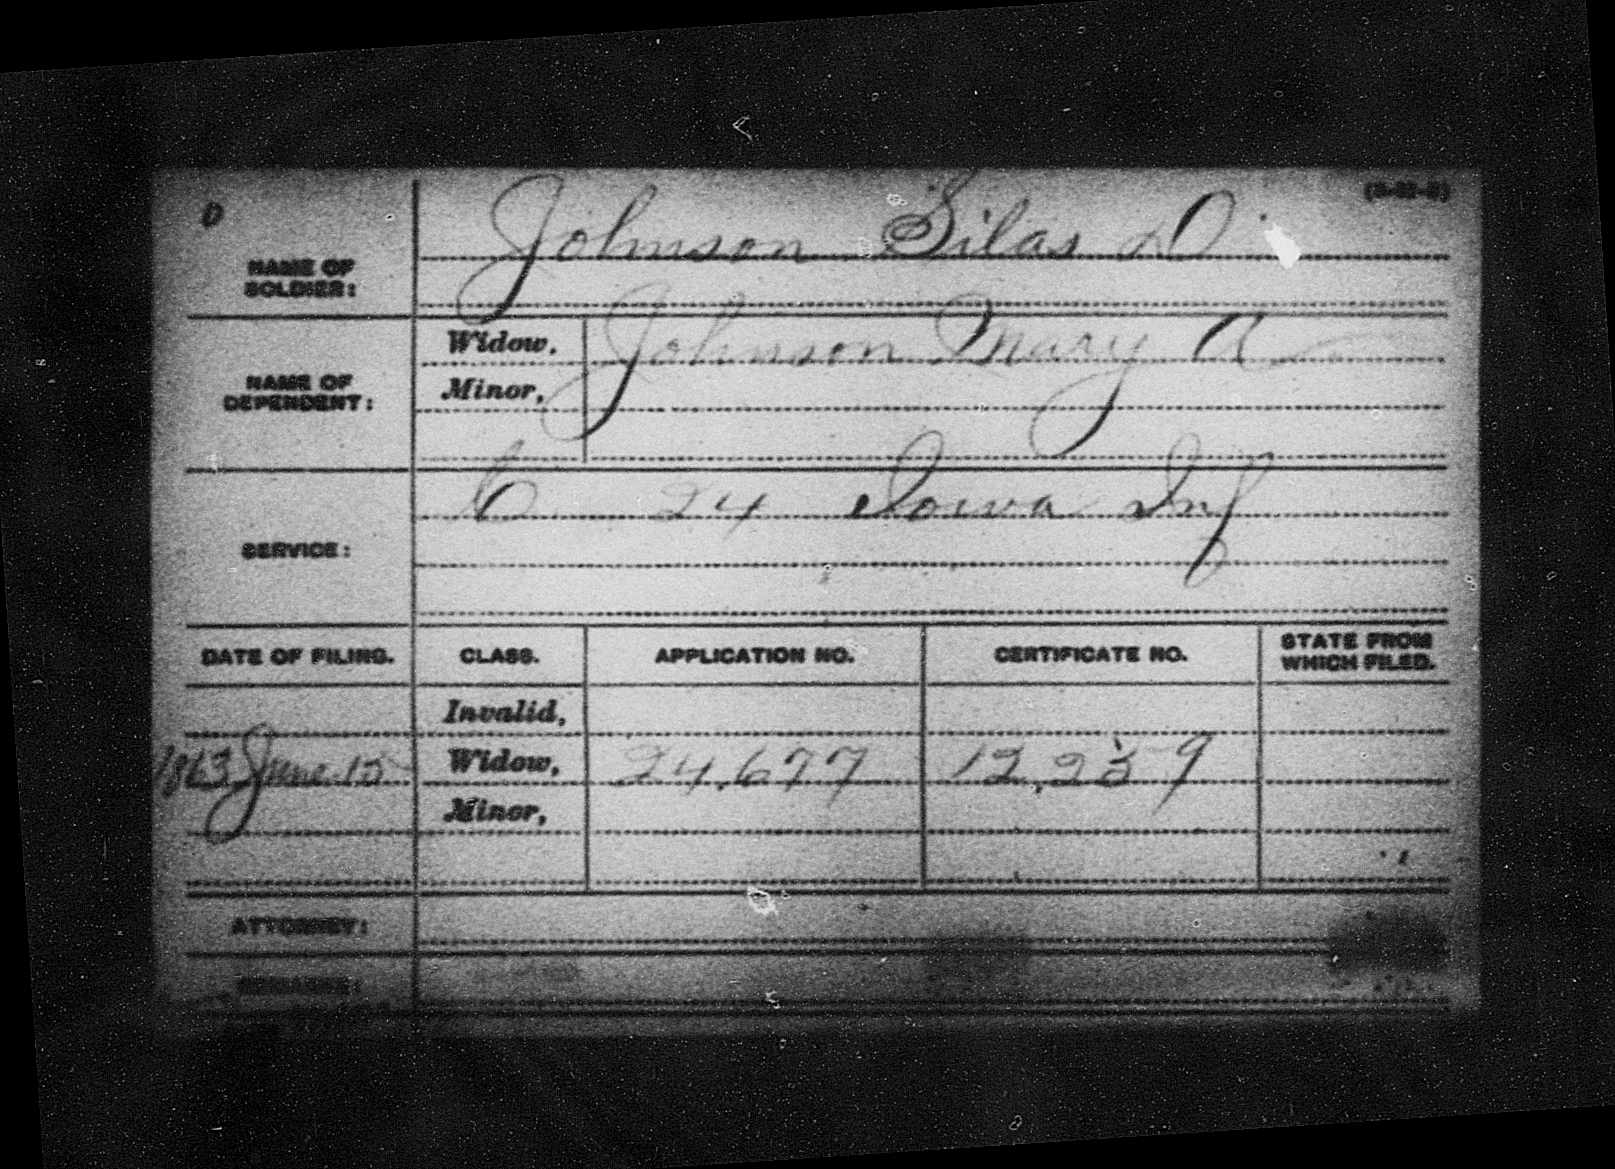 D
Johnson Silas D.
NAME OF
SOLDIER:
Widow, Johnson Mary A
Minor,
NAME OF
DEPENDENT:
C 24 Iowa Inf
SERVICE:
DATE OF FILING. CLASS. APPLICATION NO. CERTIFICATE NO. STATE FROM
WHICH FILED.
Invalid,
1863 June 15 Widow, 24,677 12,259
Minor,
ATTORNEY:
REMARKS: